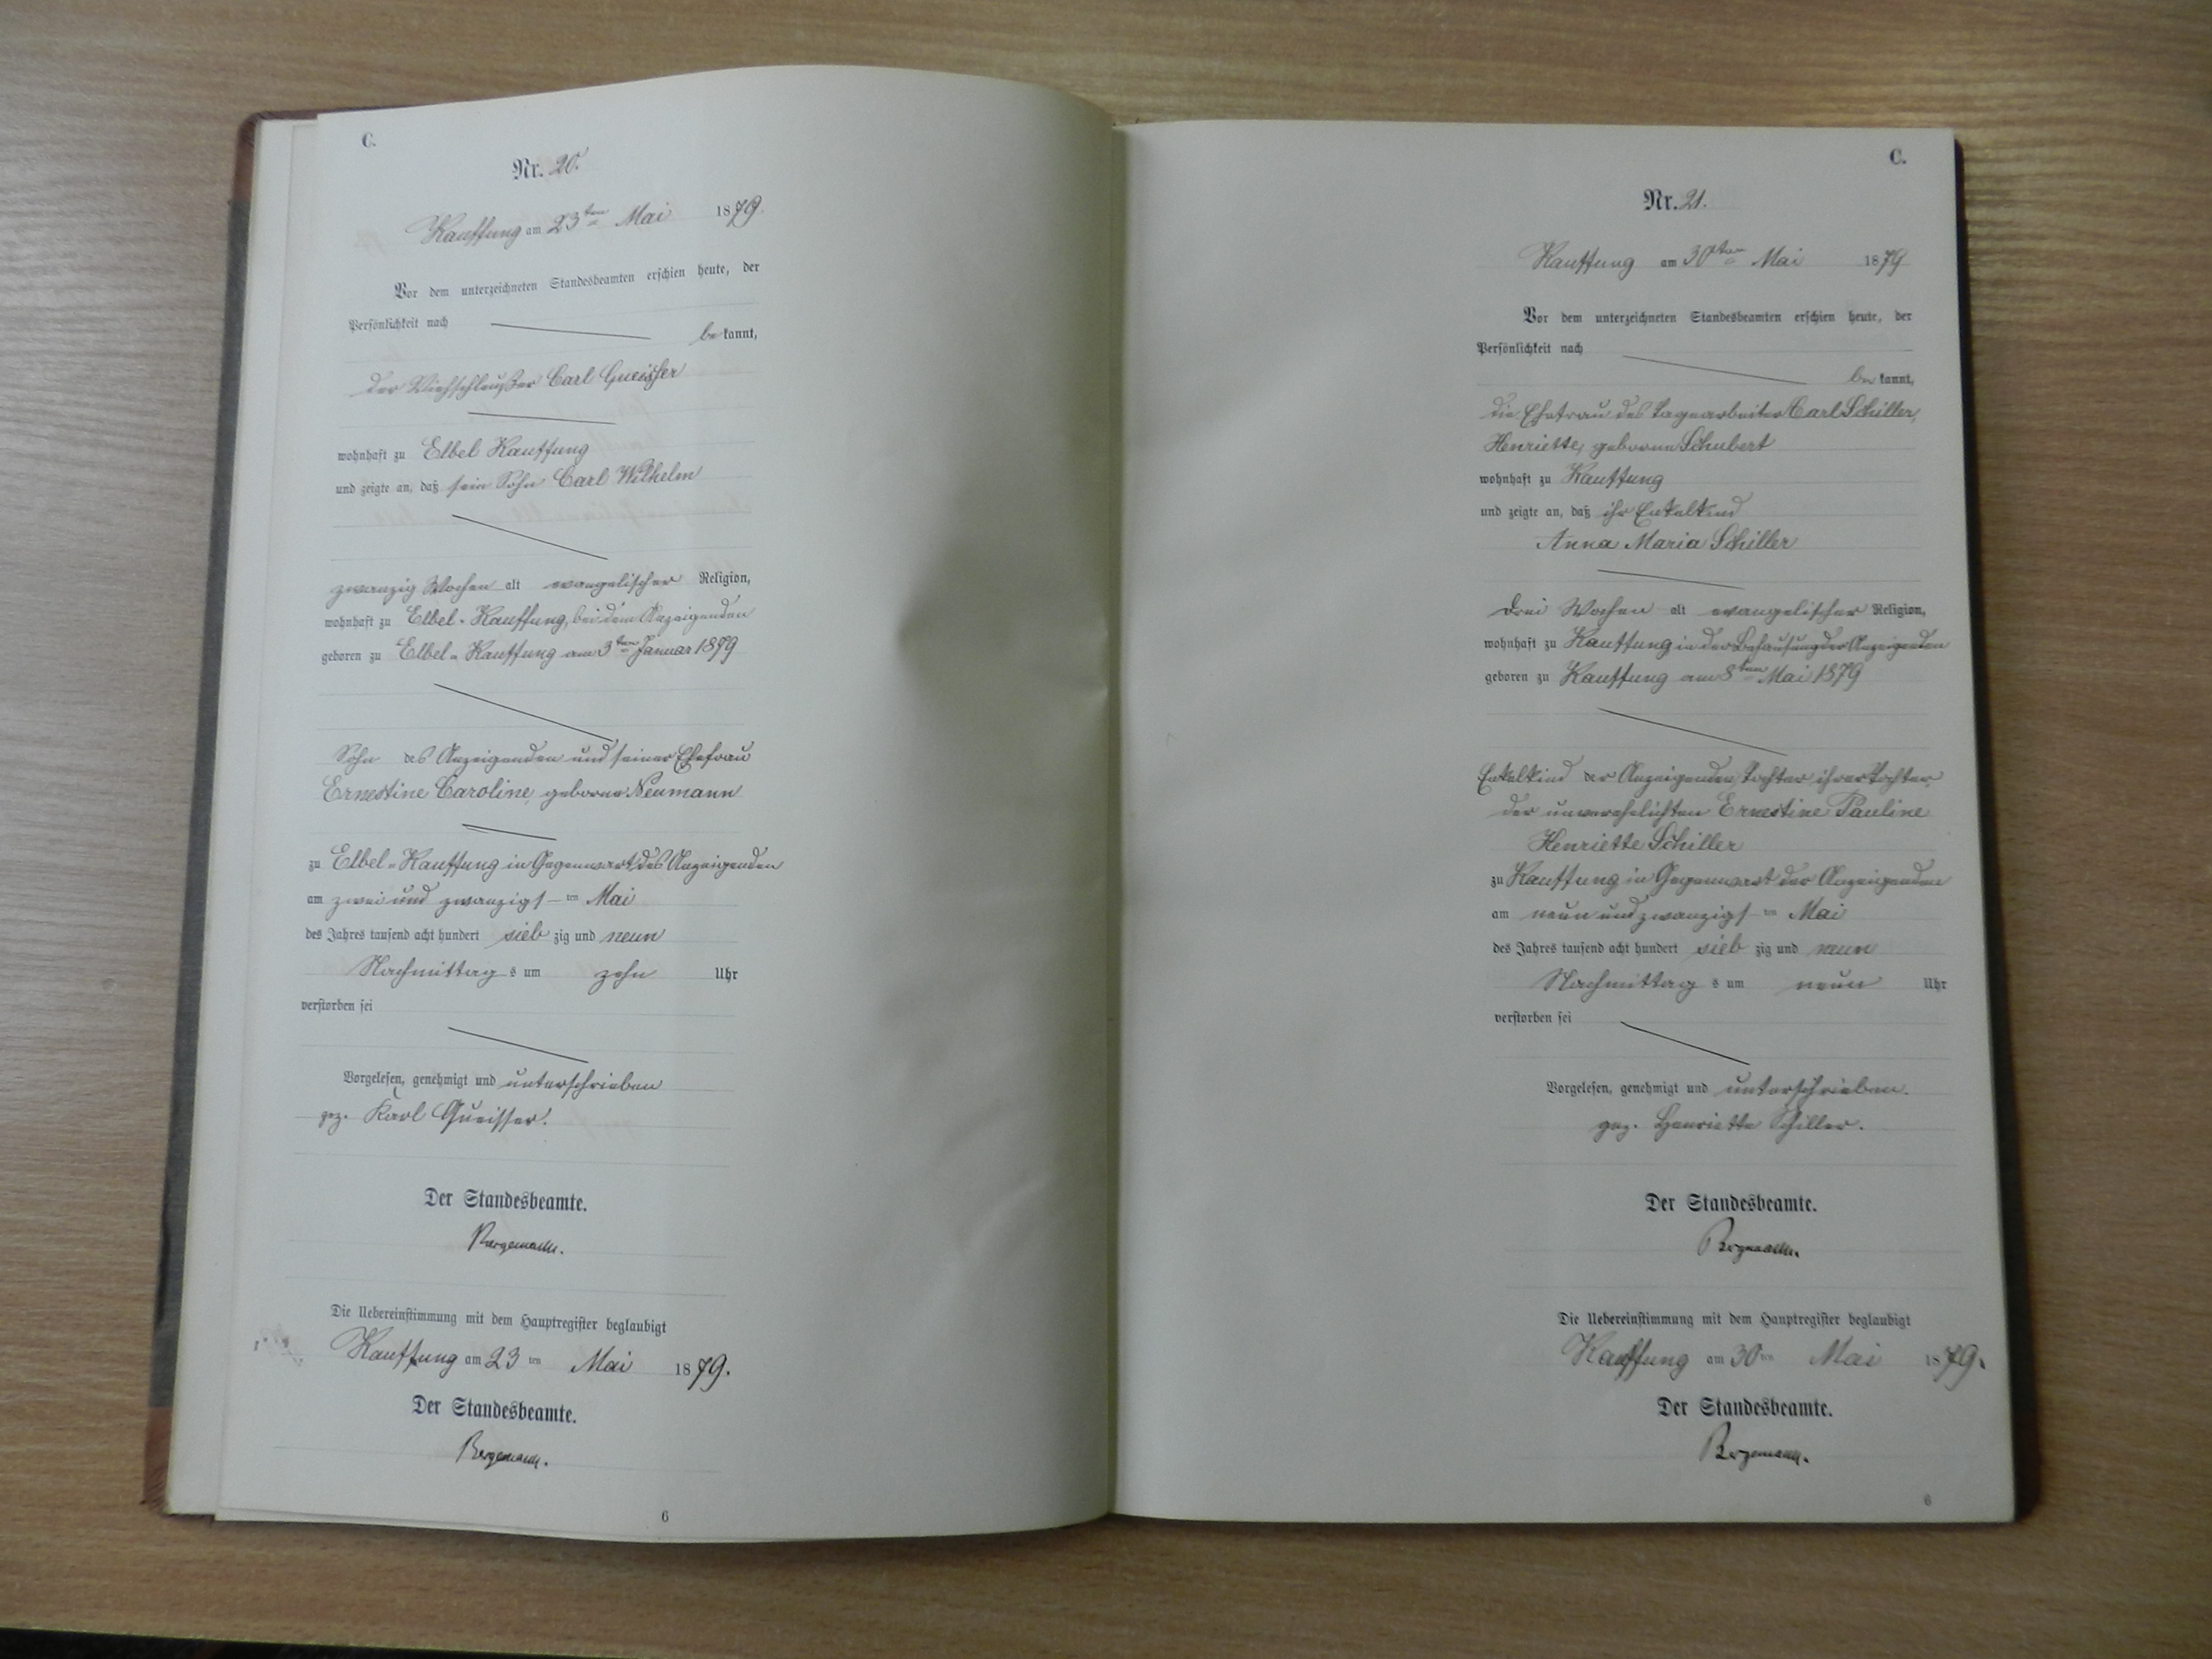 C.
Nr. 20.
Kauffung am 23ten Mai 1879.
Vor dem unterzeichneten Standesbeamten erschien heute, der
Persönlichkeit nach
bekannt,
der Viehschleußer Carl Gueisser
wohnhaft zu Elbel Kauffung
und zeigte an, daß sein Sohn Carl Wilhelm
zwanzig Wochen alt evangelischer Religion,
wohnhaft zu Elbel-Kauffung, bei dem Anzeigenden
geboren zu Elbel-Kauffung am 3ten Januar 1879
Sohn des Anzeigenden und seiner Ehefrau
Ernestine Caroline, geborne Neumann
zu Elbel-Kauffung in Gegenwart des Anzeigenden
am zwei und zwanzigsten Mai
des Jahres tausend acht hundert siebzig und neun
Nachmittags um zehn Uhr
verstorben sei
Vorgelesen, genehmigt und unterschrieben
gez. Karl Queisser.
Der Standesbeamte.
Bergemann.
Die Uebereinstimmung mit dem Hauptregister beglaubigt
Kauffung am 23ten Mai 1879.
Der Standesbeamte.
Bergemann.
6
C.
Nr. 21.
Kauffung am 30ten Mai 1879
Vor dem unterzeichneten Standesbeamten erschien heute, der
Persönlichkeit nach
bekannt,
die Ehefrau des Tagearbeiter Carl Schiller,
Henriette, geborne Schubert
wohnhaft zu Kauffung
und zeigte an, daß ihr Enkelkind
Anna Maria Schiller
drei Wochen alt evangelischer Religion,
wohnhaft zu Kauffung in der Behausung der Anzeigenden
geboren zu Kauffung am 8ten Mai 1879
Enkelkind der Anzeigenden, Tochter ihrer Tochter,
der unverehelichten Ernestine Pauline
Henriette Schiller
zu Kauffung in Gegenwart der Anzeigenden
am neun und zwanzigsten Mai
des Jahres tausend acht hundert siebzig und neun
Nachmittags um neun Uhr
verstorben sei
Vorgelesen, genehmigt und unterschrieben.
gez. Henriette Schiller.
Der Standesbeamte.
Bergemann.
Die Uebereinstimmung mit dem Hauptregister beglaubigt
Kauffung am 30ten Mai 1879.
Der Standesbeamte.
Bergemann.
6